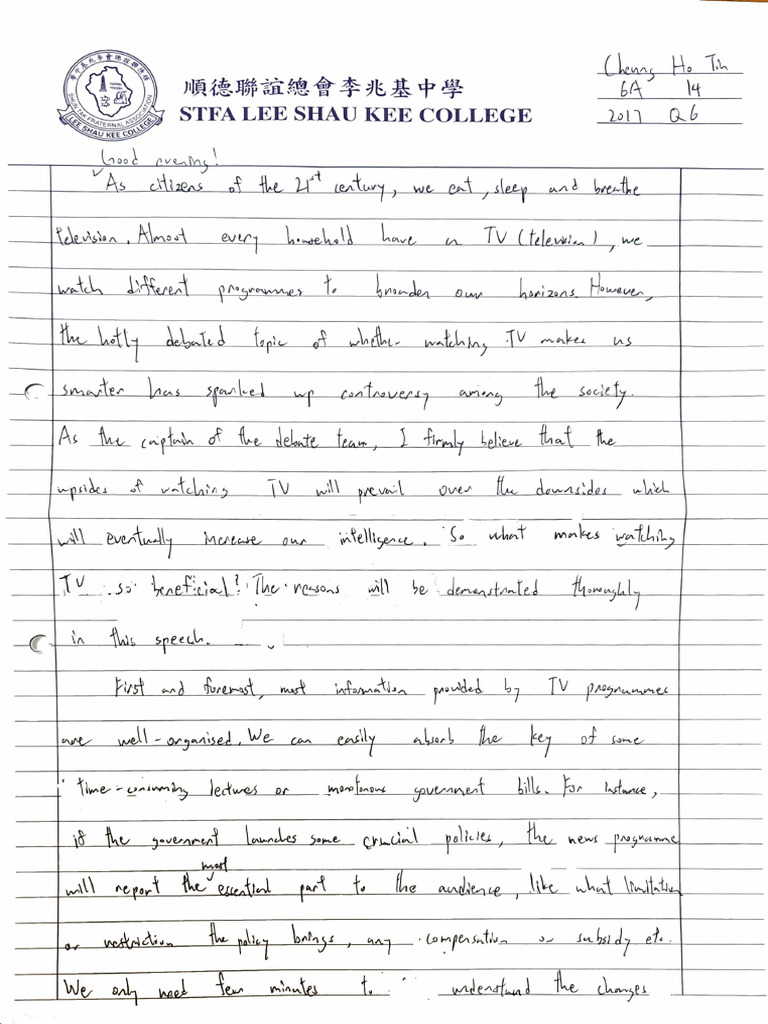 順德聯誼總會李兆基中學
STFA LEE SHAU KEE COLLEGE
LEE SHAU KEE COLLEGE
Cheung Ho Tin
6A 14
2017 Q6
Good evening!
As citizens of the 21st century, we eat, sleep and breathe
television. Almost every household have a TV (television), we
watch different programmes to broaden our horizons. However,
the hotly debated topic of whether watching TV makes us
smarter has sparked up controversy among the society.
As the captain of the debate team, I firmly believe that the
upsides of watching TV will prevail over the downsides which
will eventually increase our intelligence. So what makes watching
TV so beneficial? The reasons will be demonstrated thoroughly
in this speech.
First and foremost, most information provided by TV programmes
are well-organised. We can easily absorb the key of some
time-consuming lectures or monotonous government bills. For instance,
if the government launches some crucial policies, the news programme
most
will report the essential part to the audience, like what limitation
or restriction the policy brings, any compensation or subsidy etc.
We only need few minutes to understand the changes